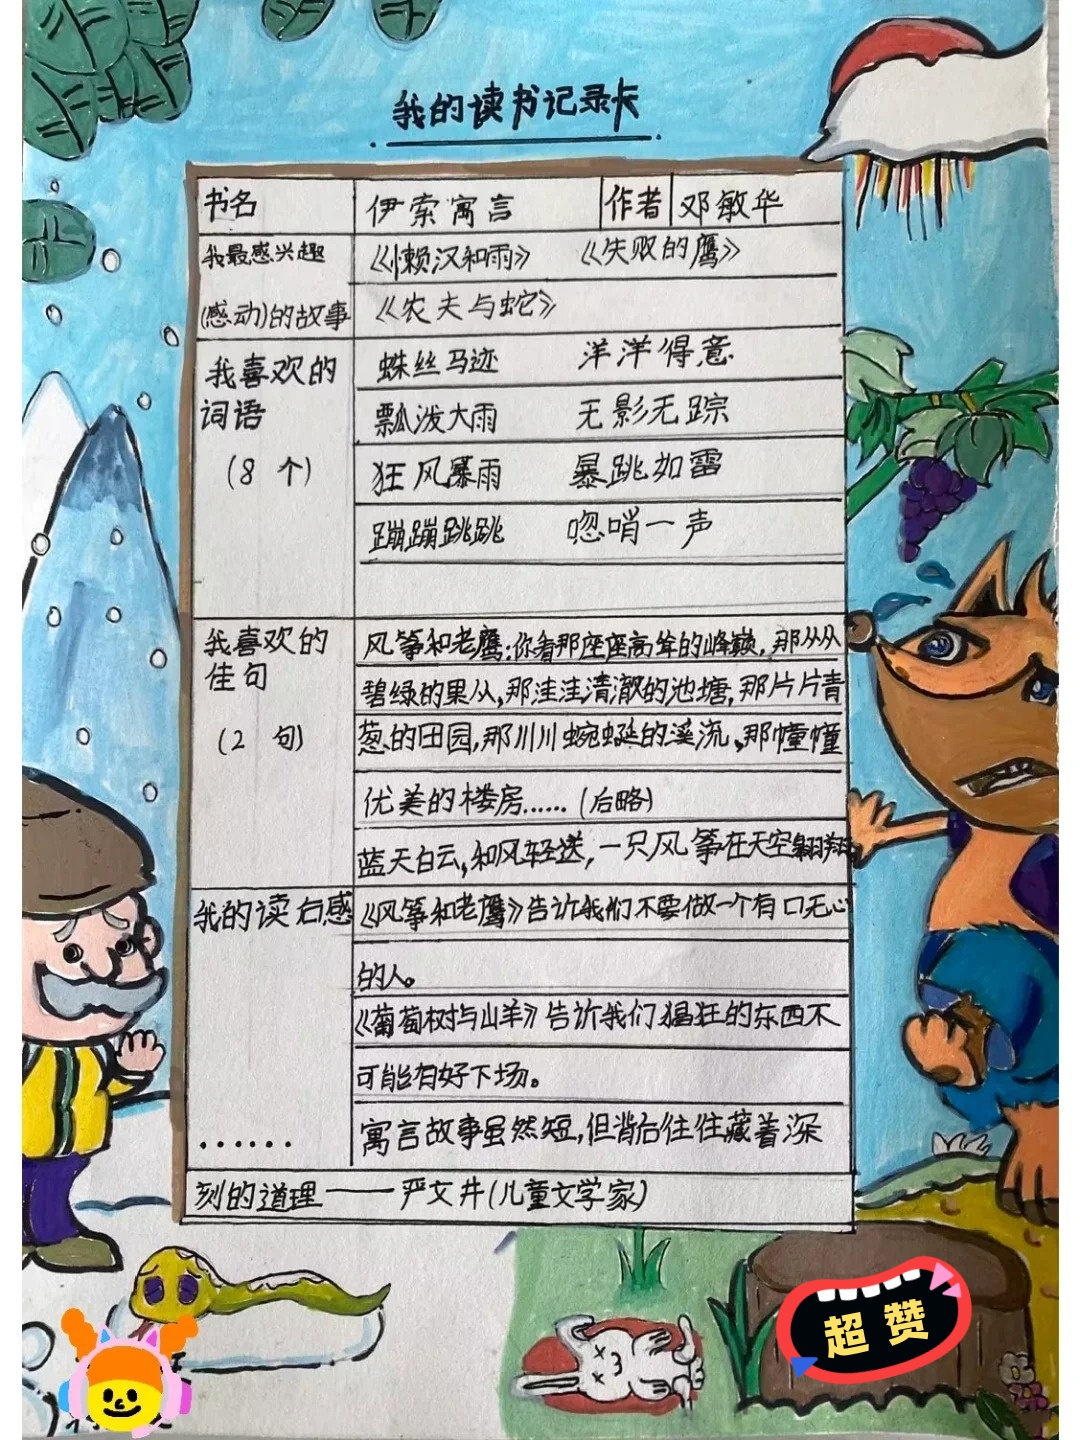 我的读书记录卡
书名 伊索寓言 作者 邓敏华
我最感兴趣 《懒汉和雨》 《失败的鹰》
(感动)的故事 《农夫与蛇》
我喜欢的 蛛丝马迹 洋洋得意
词语 瓢泼大雨 无影无踪
(8 个) 狂风暴雨 暴跳如雷
蹦蹦跳跳 唿哨一声
我喜欢的 风筝和老鹰:你看那座座高耸的峰巅,那从从
佳句 碧绿的果从,那洼洼清澈的池塘,那片片青
(2 句) 葱的田园,那川川蜿蜒的溪流,那幢幢
优美的楼房……(后略)
蓝天白云,和风轻送,一只风筝在天空翱翔
我的读后感 《风筝和老鹰》告诉我们不要做一个有口无心
的人。
《葡萄树与山羊》告诉我们猖狂的东西不
可能有好下场。
…… 寓言故事虽然短,但背后往往藏着深
刻的道理——严文井(儿童文学家)
超赞